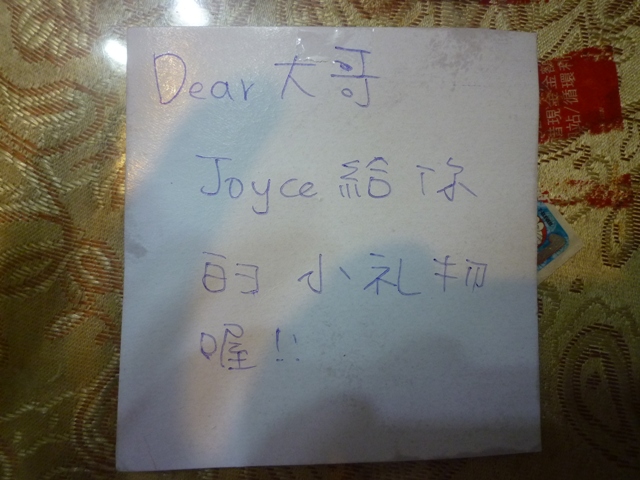 Dear 大哥
Joyce 給你
的小礼物
喔!!